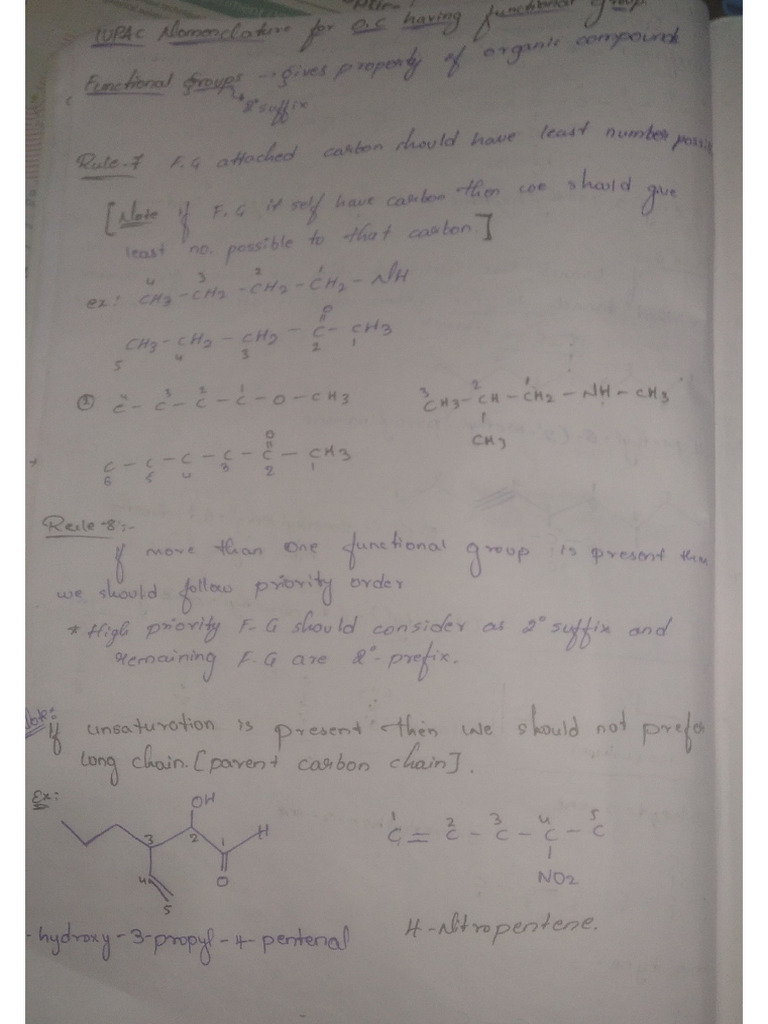 IUPAC Nomenclature for O.C having functional group.
Functional Groups → gives property of organic compound
2° suffix
Rule-7 F.G attached carbon should have least number possi
[Note if F.G it self have carbon then we should give
least no. possible to that carbon.]
ex: 4CH3-3CH2-2CH2-1CH2-NH
CH3-CH2-CH2-C-CH3
O
5 4 3 2 1
② 4C-3C-2C-1C-O-CH3
3CH3-2CH-1CH2-NH-CH3
CH3
C-C-C-C-C-CH3
O
6 5 4 3 2 1
Rule-8:-
If more than one functional group is present then
we should follow priority order
* High priority F-G should consider as 2° suffix and
remaining F.G are 2°-prefix.
Note: If unsaturation is present then we should not prefer
long chain. [parent carbon chain].
Ex:
OH
3 2 1 H
4 O
5
1C=2C-3C-4C-5C
NO2
-hydroxy-3-propyl-4-pentenal
4-Nitropentene.